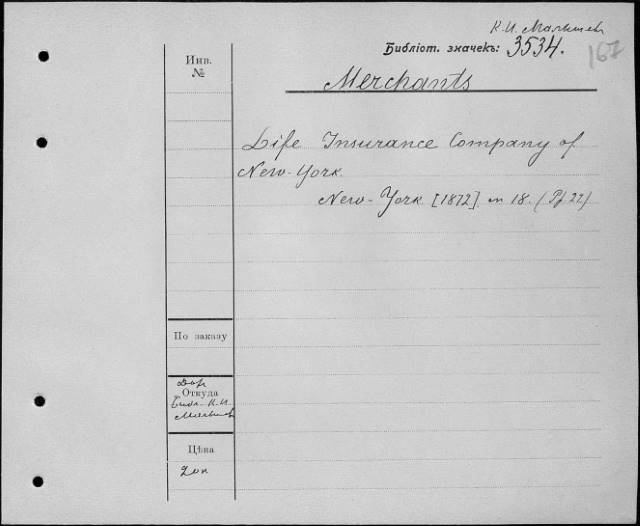 К.И. Малышев
Библіот. значекъ: 3534.
167
Инв.
№
Merchants
Life Insurance Company of
New-York.
New-York [1872] in 18. (Pf 22)
По заказу
Дар
Откуда
Библ. К.И.
Малышев
Цѣна